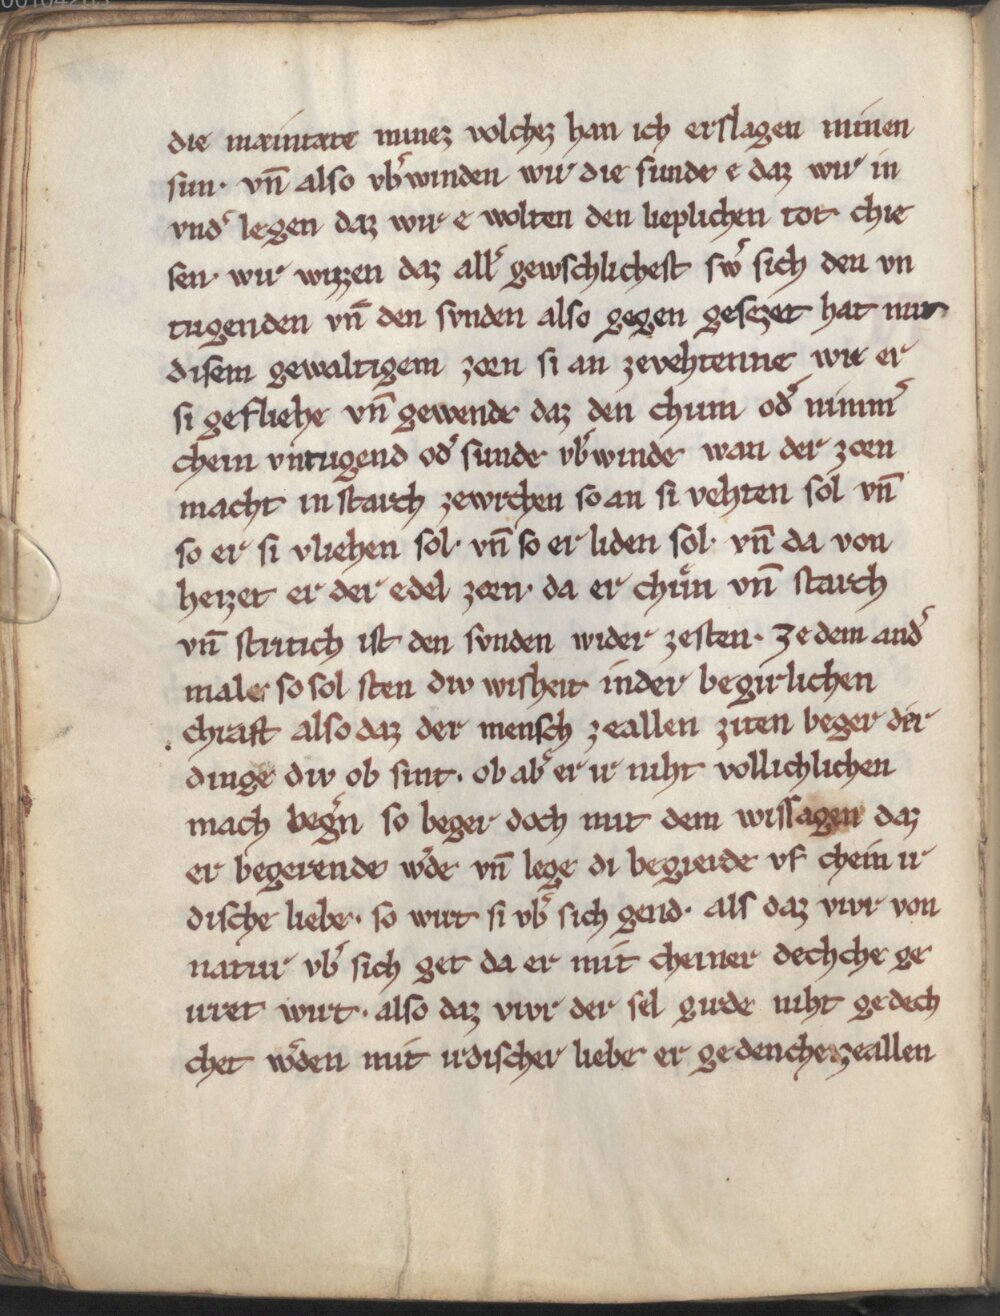 00104283
die mæintæte minez volchez han ich erslagen minen
sun· vn̄ also vb͛winden wir die sunde e daz wir in
vnd͛ legen daz wir e wolten den lieplichen tot chie
sen· wir wizzen daz all͛ gewschlichest sw͛ sich den vn
tugenden vn̄ den svnden also gegen gesezet hat mit
disem gewaltigem zorn si an zevehtenne wie er
si gefliehe vn̄ gewende daz den chum od͛ nimm͛
chein vntugend od͛ sunde vb͛winde wan der zorn
macht in starch zewrchen so an si vehten sol vn̄
so er si vliehen sol· vn̄ so er liden sol· vn̄ da von
heizet er der edel zorn· da er chůn vn̄ starch
vn̄ stritich ist den svnden wider zesten· Ze dem and͛
male so sol sten div wisheit in der begirlichen
chraft also daz der mensch ze allen ziten beger der
dinge div ob sint· ob ab͛ er ir niht vollichlichen
mach beg͛n so beger doch mit dem wissagen daz
er begerende w͛de vn̄ lege di begierde vf chein ir
dische liebe· so wirt si vb͛ sich gend· als daz vivr von
natur vb͛ sich get da er mit cheiner dechche ge
irret wirt· also daz vivr der sel girde niht gedech
chet w͛den mit irdischer liebe er gedenche zeallen